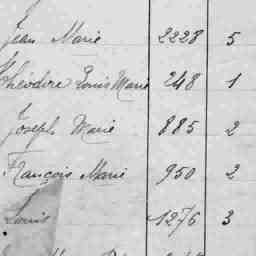 Jean Marie 2228 5
Théodore Louis Marie 248 1
Joseph Marie 885 2
François Marie 950 2
Louis 1276 3